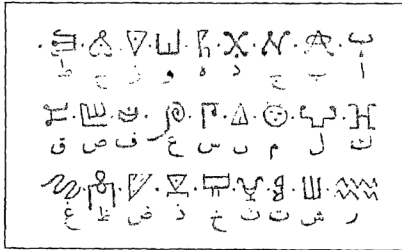 أ ب ج د ه و ز ح ط
ك ل م ن س ع ف ص ق
ر ش ت ث خ ذ ض ظ غ